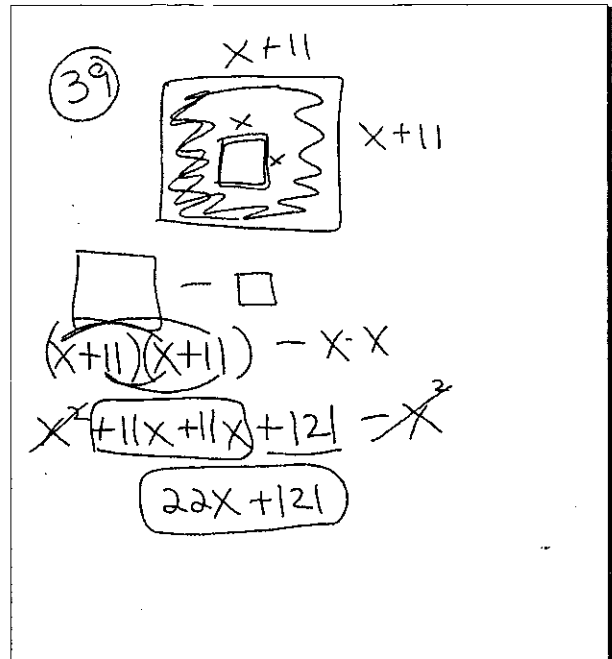 39
x+11
x+11
x
x
□ - □
(x+11)(x+11) - x·x
x² +11x +11x +121 - x²
22x +121